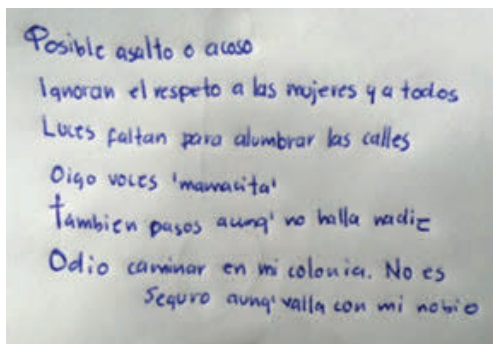 Posible asalto o acoso
Ignoran el respeto a las mujeres y a todos
Luces faltan para alumbrar las calles
Oigo voces 'mamacita'
Tambien pasos aunq' no halla nadie
Odio caminar en mi colonia. No es
seguro aunq' valla con mi nobio